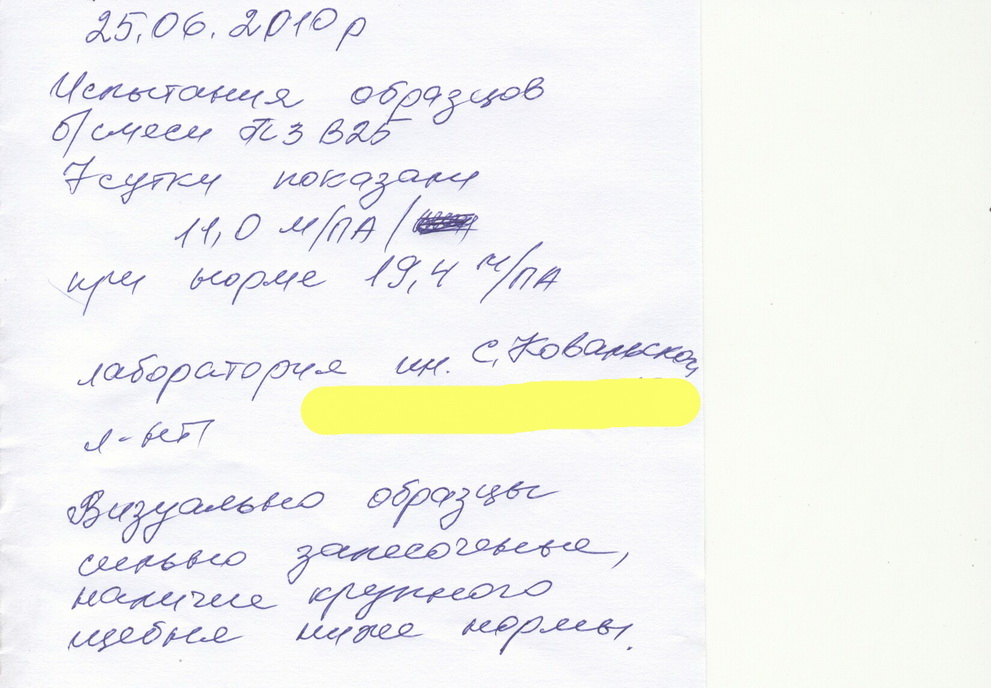 25.06.2010р
Испытания образцов
б/смеси П3 В25
7 сутки показали
11,0 М/ПА /
при норме 19,4 м/ПА
лаборатория ин. С. Ковальской
л-нт
Визуально образцы
сильно запесоченые,
наличие крупного
щебня ниже нормы.